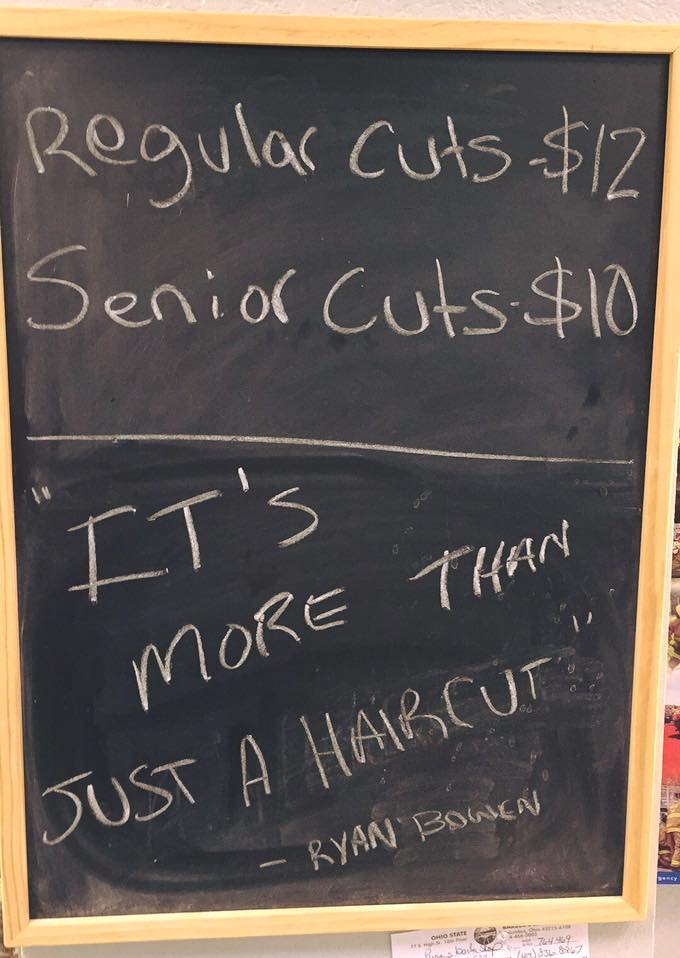 Regular Cuts-$12
Senior Cuts-$10
"IT'S
MORE THAN
JUST A HAIRCUT"
- RYAN BOWEN
OHIO STATE